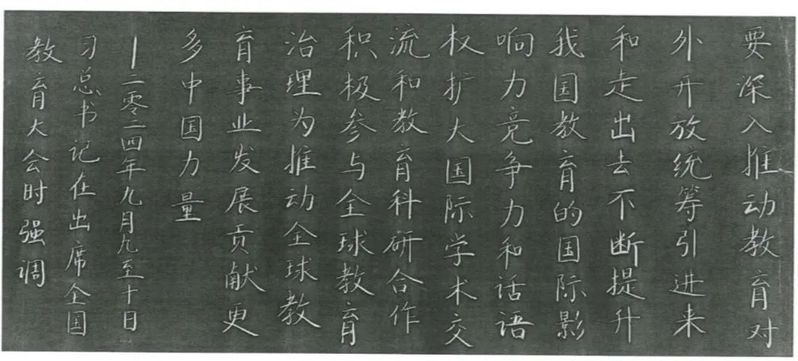 要深入推动教育对
外开放统筹引进来
和走出去不断提升
我国教育的国际影
响力竞争力和话语
权扩大国际学术交
流和教育科研合作
积极参与全球教育
治理为推动全球教
育事业发展贡献更
多中国力量
—二零二四年九月九至十日
习总书记在出席全国
教育大会时强调